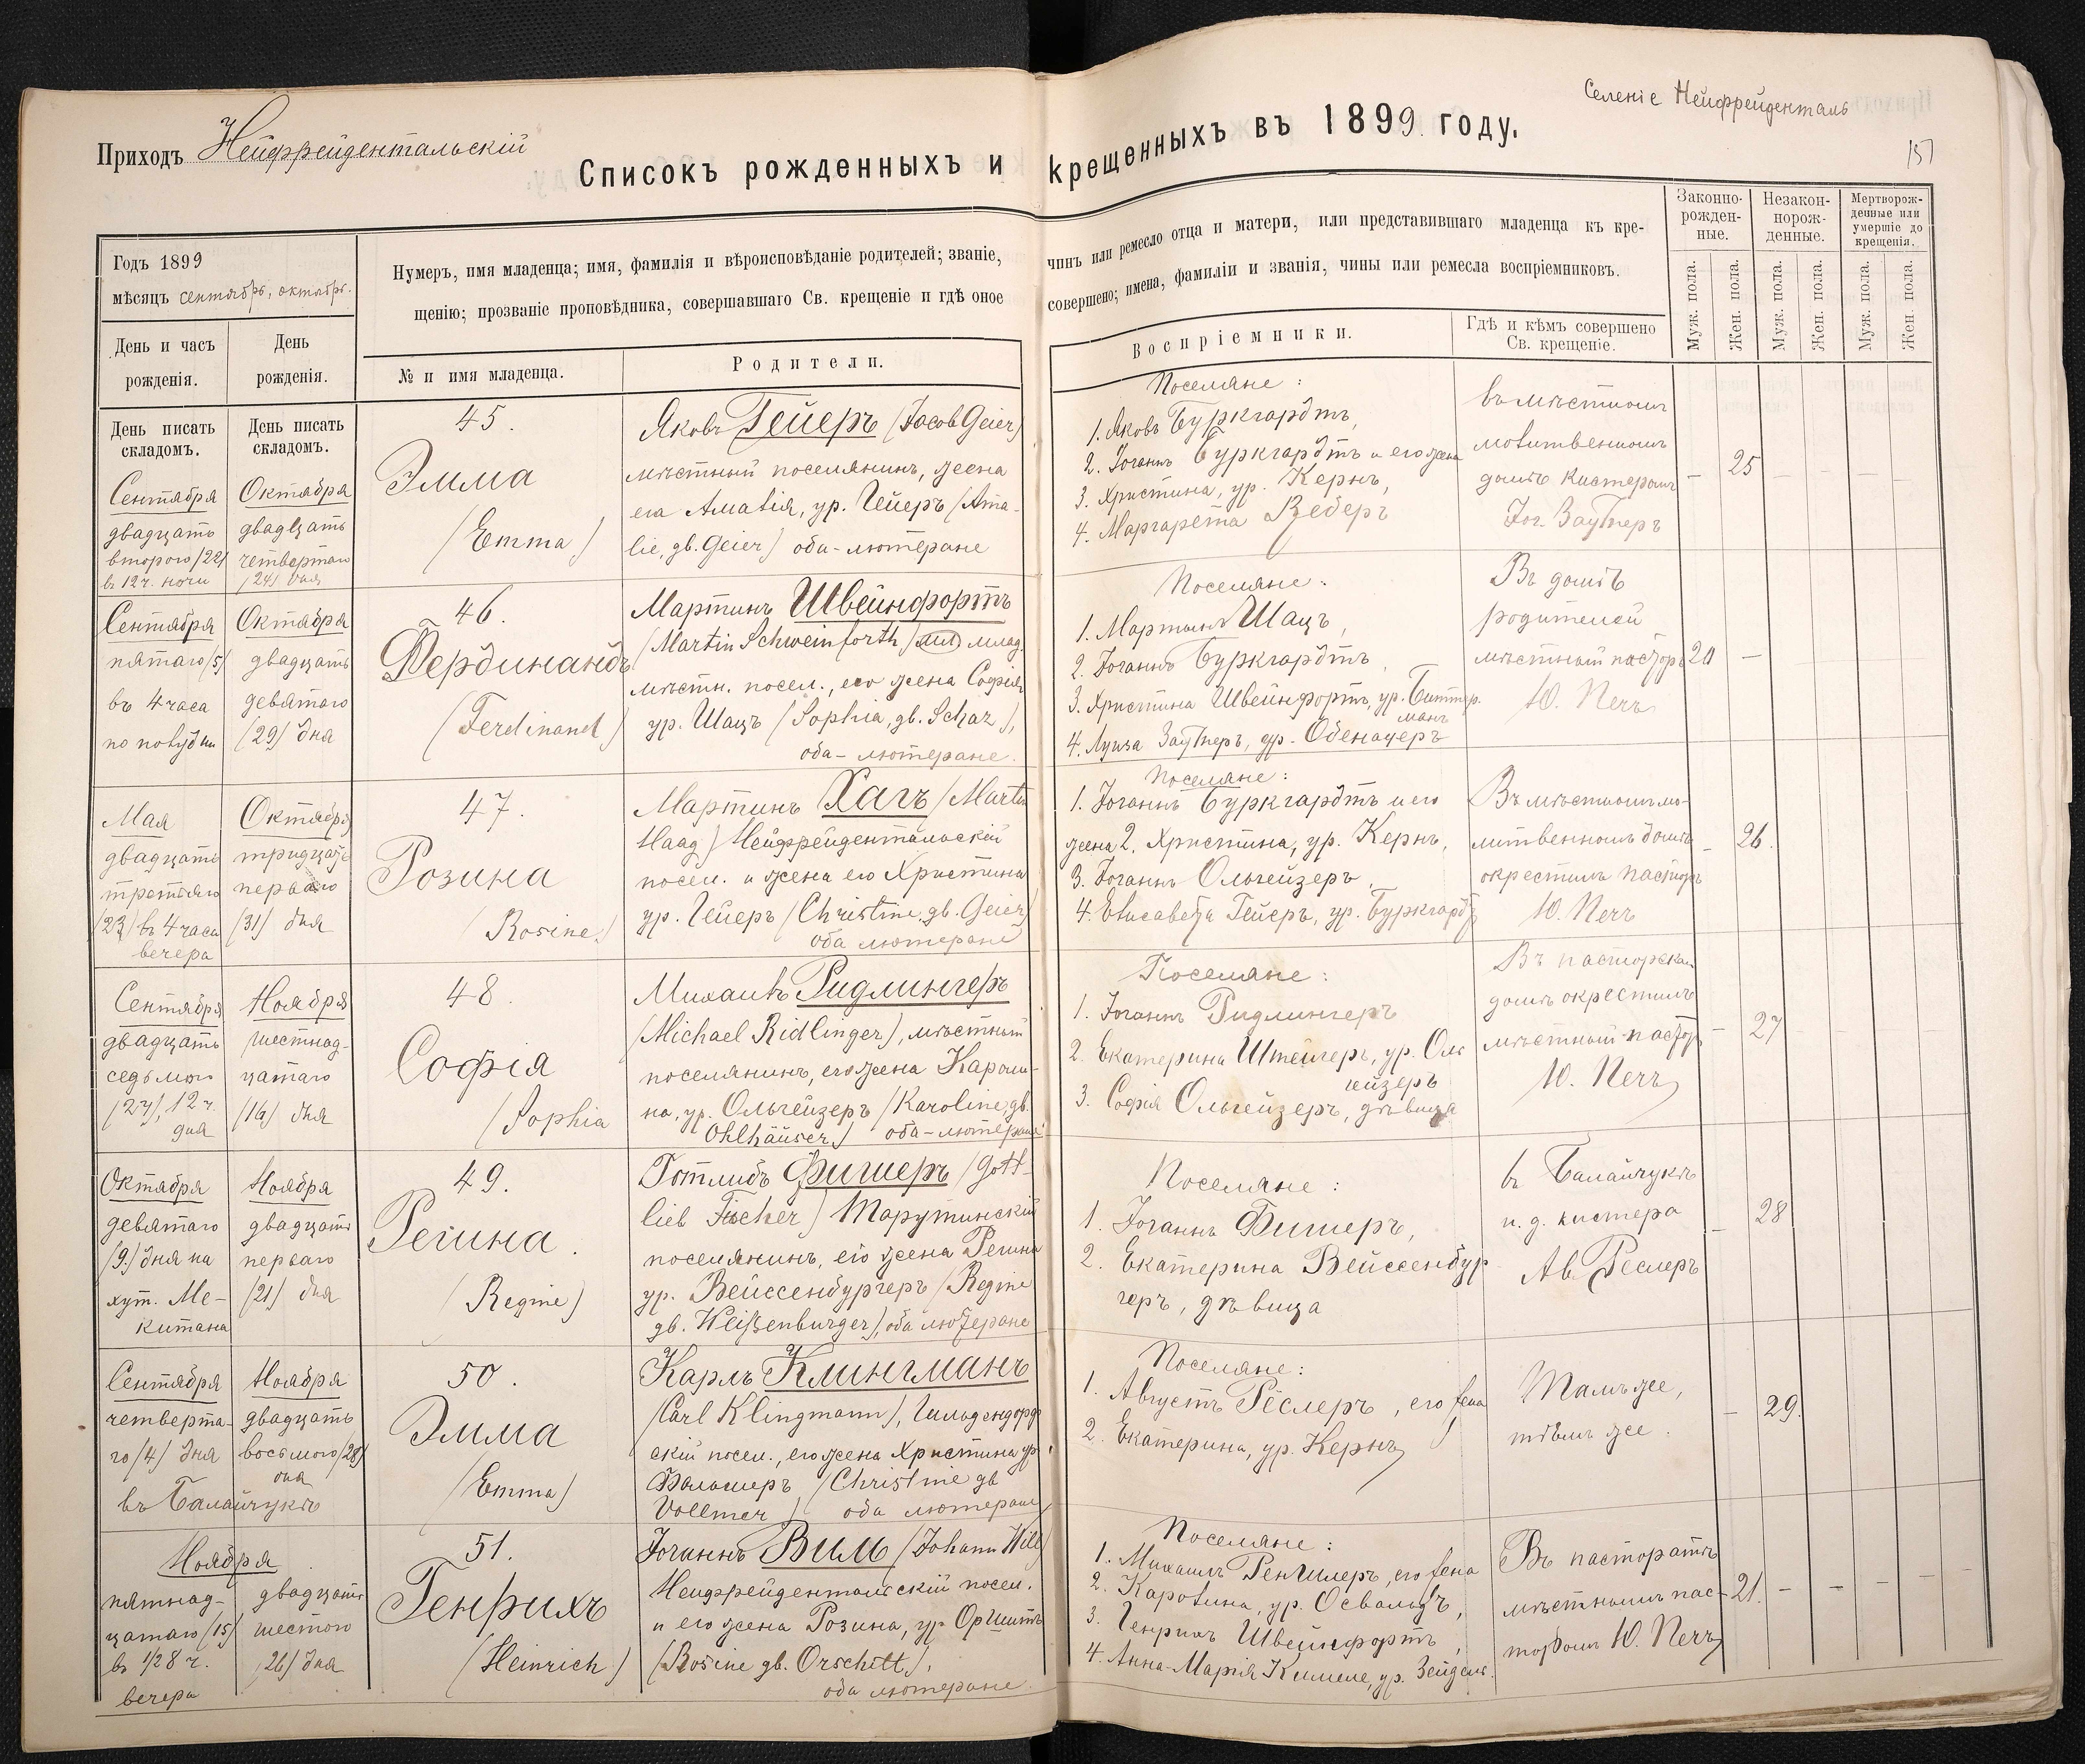 Приходъ Нейфрейдентальскій
Селеніе Нейфрейденталь
157
Списокъ рожденныхъ и крещенныхъ въ 1899 году.
Годъ 1899
мѣсяцъ сентябрь, октябрь.
День и часъ
рожденія.
День
рожденія.
Нумеръ, имя младенца; имя, фамилія и вѣроисповѣданіе родителей; званіе, чинъ или ремесло отца и матери, или представившаго младенца къ кре-
щенію; прозваніе проповѣдника, совершавшаго Св. крещеніе и гдѣ оное совершено; имена, фамиліи и званія, чины или ремесла воспріемниковъ.
№ и имя младенца.
Родители.
Воспріемники.
Гдѣ и кѣмъ совершено
Св. крещеніе.
Законно-
рожден-
ные.
Незакон-
норож-
денные.
Мертворож-
денные или
умершіе до
крещенія.
Муж. пола.
Жен. пола.
Муж. пола.
Жен. пола.
Муж. пола.
Жен. пола.
День писать
складомъ.
День писать
складомъ.
Сентября
двадцать
второго /22/
въ 12 ч. ночи
Октября
двадцать
четвертаго
/24/ дня
45.
Эмма
(Emma)
Яковъ Гейеръ (Jacob Geier)
мѣстный поселянинъ, жена
его Амалія, ур. Гейеръ (Ama-
lie, gb. Geier) оба-лютеране
Поселяне:
1. Яковъ Буркгардтъ,
2. Іоганнъ Буркгардтъ и его жена
3. Христина, ур. Кернъ,
4. Маргарета Веберъ
въ мѣстномъ
молитвенномъ
домѣ кистеромъ
Іог. Заутнеръ
– 25 – – –
Сентября
пятаго /5/
въ 4 часа
по полудни
Октября
двадцать
девятаго
(29) дня
46.
Фердинандъ
(Ferdinand)
Мартинъ Швейнфортъ
(Martin Schweinforth) млад.
мѣстн. посел., его жена Софія
ур. Шацъ (Sophia, gb. Schaz),
оба-лютеране.
Поселяне:
1. Мартинъ Шацъ,
2. Іоганнъ Буркгардтъ,
3. Христина Швейнфортъ, ур. Биттер-
манъ
4. Луиза Заутнеръ, ур. Обенауеръ
Въ домѣ
родителей
мѣстный пасторъ
Ю. Печъ
20 –
Мая
двадцать
третьяго
(23) въ 4 часа
вечера
Октября
тридцать
перваго
(31) дня
47.
Розина
(Rosine)
Мартинъ Хагъ (Martin
Haag) Нейфрейдентальскій
посел. и жена его Христина
ур. Гейеръ (Christine, gb. Geier)
оба лютеране
Поселяне:
1. Іоганнъ Буркгардтъ и его
жена 2. Христина, ур. Кернъ,
3. Іоганнъ Ольгейзеръ,
4. Елисавета Гейеръ, ур. Буркгардтъ
Въ мѣстномъ мо-
литвенномъ домѣ
окрестилъ пасторъ
Ю. Печъ
– 26.
Сентября
двадцать
седьмого
(27), 12 ч.
дня
Ноября
шестнад-
цатаго
(16) дня
48.
Софія
(Sophia
Михаилъ Ридлингеръ
(Michael Ridlinger), мѣстный
поселянинъ, его жена Кароли-
на, ур. Ольгейзеръ (Karoline, gb.
Ohlhäuser) оба-лютеране
Поселяне:
1. Іоганнъ Ридлингеръ
2. Екатерина Штейгеръ, ур. Оль-
гейзеръ
3. Софія Ольгейзеръ, дѣвица
Въ пасторскомъ
домѣ окрестилъ
мѣстный пасторъ
Ю. Печъ
– 27
Октября
девятаго
(9.) дня на
хут. Ме-
китана
Ноября
двадцать
перваго
(21) дня
49.
Регина.
(Regine)
Готлибъ Фишеръ (Gott-
lieb Fischer) Тарутинскій
поселянинъ, его жена Регина
ур. Вейссенбургеръ (Regine
gb. Weißenburger), оба лютеране
Поселяне:
1. Іоганнъ Фишеръ,
2. Екатерина Вейссенбур-
геръ, дѣвица
въ Балайчукѣ
и. д. кистера
Ав. Реслеръ
– 28
Сентября
четверта-
го /4/ дня
въ Балайчукѣ
Ноября
двадцать
восьмого /28/
дня
50.
Эмма
(Emma)
Карлъ Клингманъ
(Carl Klingmann), Гильдендорф-
скій посел., его жена Христина ур.
Фольмеръ (Christine gb
Vollmer) оба лютеране
Поселяне:
1. Августъ Рёслеръ, его жена
2. Екатерина, ур. Кернъ
Тамъ же,
тѣмъ же.
– 29.
Ноября
пятнад-
цатаго (15)
въ 1/2 8 ч.
вечера
двадцать
шестого
(26) дня
51.
Генрихъ
(Heinrich)
Іоганнъ Виль (Johann Will)
Нейфрейдентальскій посел.
и его жена Розина, ур. Оршитъ
(Rosine gb. Orschitt),
оба лютеране.
Поселяне:
1. Михаилъ Реншлеръ, его жена
2. Каролина, ур. Освальдъ,
3. Генрихъ Швейнфортъ,
4. Анна-Марія Киммеле, ур. Зейдель.
Въ пасторатѣ
мѣстнымъ пас-
торомъ Ю. Печъ
21. – – – – –